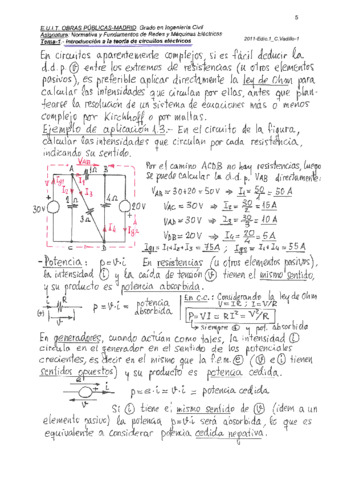 5
E.U.I.T. OBRAS PÚBLICAS-MADRID. Grado en Ingeniería Civil
Asignatura: Normativa y Fundamentos de Redes y Máquinas Eléctricas
2011-Edic.1_C.Vadillo-1
Tema-1 - Introducción a la teoría de circuitos eléctricos
En circuitos aparentemente complejos, si es fácil deducir la
d.d.p. entre los extremos de resistencias (u otros elementos
pasivos), es preferible aplicar directamente la ley de Ohm para
calcular las intensidades que circulan por ellas, antes que plan-
tearse la resolución de un sistema de ecuaciones más o menos
complejo por Kirchhoff o por mallas.
Ejemplo de aplicación 1.3.- En el circuito de la figura,
calcular las intensidades que circulan por cada resistencia,
indicando su sentido.
Por el camino ACDB no hay resistencias, luego
se puede calcular la d.d.p. VAB directamente:
VAB = 30+20 = 50 V ⇒ I1 = 50/1 = 50 A
VAC = 30V ⇒ I2 = 30/2 = 15 A
VAD = 30V ⇒ I3 = 30/3 = 10 A
VDB = 20V ⇒ I4 = 20/4 = 5 A
Ig1 = I1+I2+I3 = 75A ; Ig2 = I1+I4 = 55A
VAB
A
B
C
D
30V
20V
- Potencia: p=v·i En resistencias (u otros elementos pasivos),
la intensidad (i) y la caída de tensión (v) tienen el mismo sentido,
y su producto es potencia absorbida.
p = v·i = potencia absorbida
En c.c.: Considerando la ley de Ohm
V=IR ; I=V/R
P=VI = RI² = V²/R
siempre ⊕ y pot. absorbida
En generadores, cuando actúan como tales, la intensidad (i)
circula en el generador en el sentido de los potenciales
crecientes, es decir en el mismo que la f.e.m. (e) (v e i tienen
sentidos opuestos) y su producto es potencia cedida.
p = e·i = v·i = potencia cedida
Si (i) tiene el mismo sentido de (v) (idem a un
elemento pasivo) la potencia p=v·i será absorbida, lo que es
equivalente a considerar potencia cedida negativa.